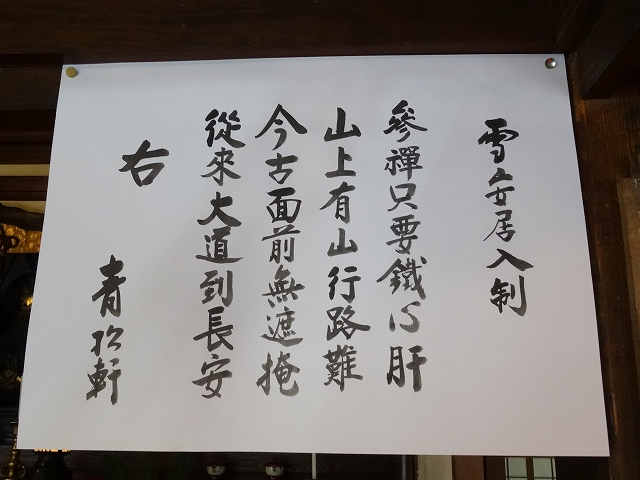 雪安居入制
參禪只要鐵心肝
山上有山行路難
今古面前無遮掩
從來大道到長安
右
青松軒